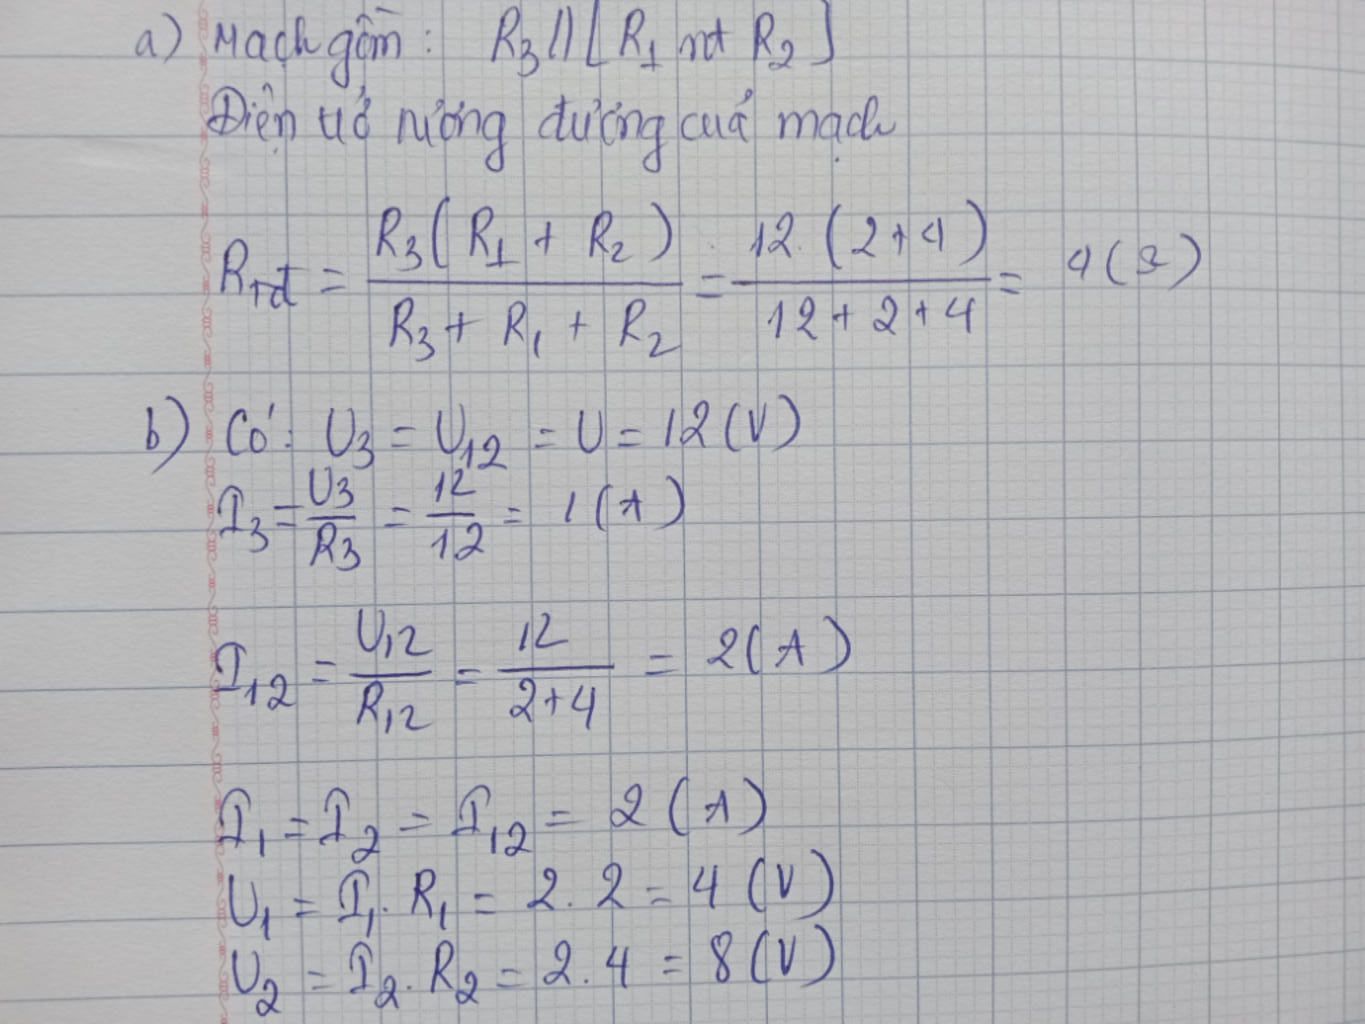 a) Mạch gồm: R3 // [R1 nt R2]
Điện trở tương đương của mạch
Rtđ = R3(R1 + R2) / R3 + R1 + R2 = 12.(2+4) / 12+2+4 = 4(Ω)
b) Có: U3 = U12 = U = 12(V)
I3 = U3/R3 = 12/12 = 1(A)
I12 = U12/R12 = 12/2+4 = 2(A)
I1 = I2 = I12 = 2(A)
U1 = I1.R1 = 2.2 = 4(V)
U2 = I2.R2 = 2.4 = 8(V)